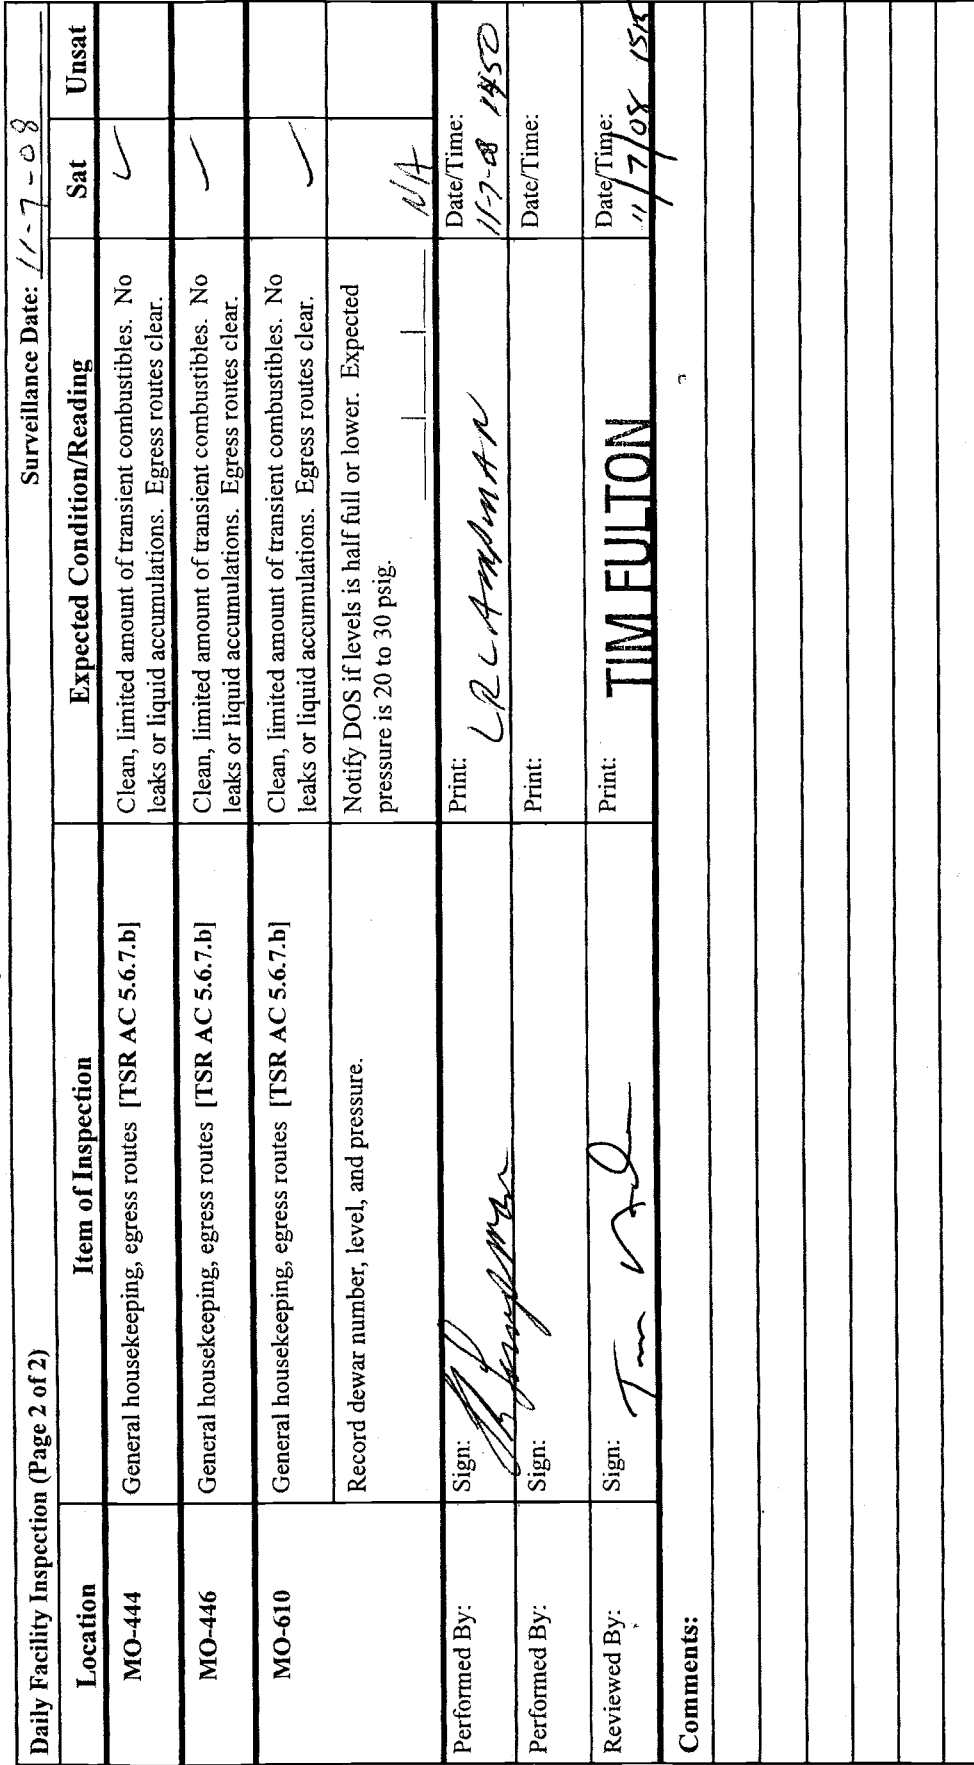 Daily Facility Inspection (Page 2 of 2) Surveillance Date: 11-7-08
Location Item of Inspection Expected Condition/Reading Sat Unsat
MO-444 General housekeeping, egress routes [TSR AC 5.6.7.b] Clean, limited amount of transient combustibles. No ✓
leaks or liquid accumulations. Egress routes clear.
MO-446 General housekeeping, egress routes [TSR AC 5.6.7.b] Clean, limited amount of transient combustibles. No ✓
leaks or liquid accumulations. Egress routes clear.
MO-610 General housekeeping, egress routes [TSR AC 5.6.7.b] Clean, limited amount of transient combustibles. No ✓
leaks or liquid accumulations. Egress routes clear.
Record dewar number, level, and pressure. Notify DOS if levels is half full or lower. Expected
pressure is 20 to 30 psig. N/A
Performed By: Sign: Print: Date/Time:
11-7-08 1450
Performed By: Sign: Print: Date/Time:
Reviewed By: Sign: Print: TIM FULTON Date/Time:
11/7/08
Comments: